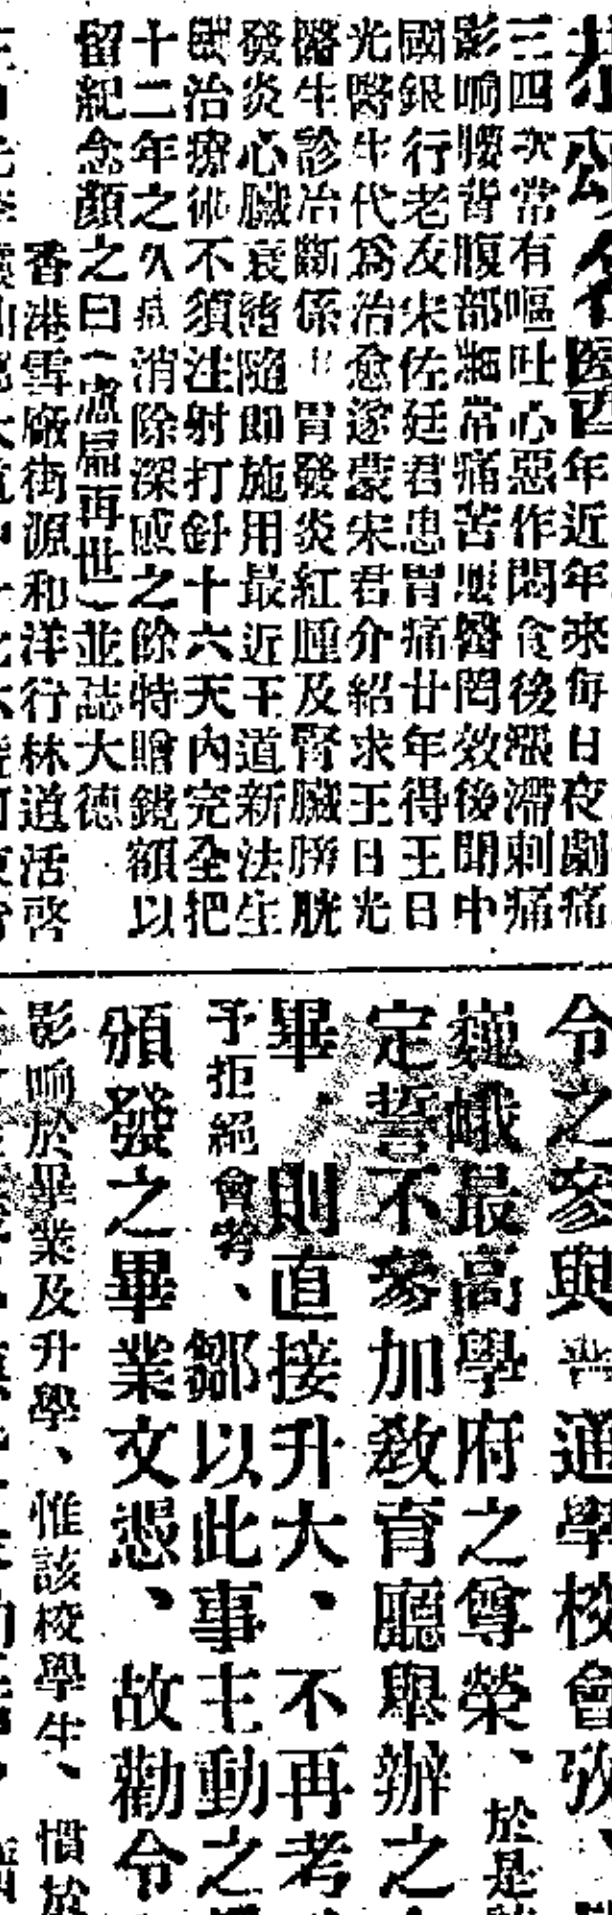 恭頌名醫酉年近年來每日夜劇痛
三四次常有嘔吐心惡作悶食後漲滯刺痛
影响腰背腹部瀕常痛苦歷醫罔效後聞中
國銀行老友宋佐廷君患胃痛廿年得王日
光醫生代為治愈遂蒙宋君介紹求王日光
醫生診治斷係胃發炎紅腫及腎臟膀胱
發炎心臟衰弱隨即施用最近王道新法生
理治療術不須注射打針十六天內完全把
十二年之久病消除深感之餘特贈鏡額以
留紀念顏之曰(盧扁再世)並誌大德
香港雪廠街源和洋行林道活啓
令之參與普通學校會攷、
巍峨最高學府之尊榮、於是
定誓不參加教育廳舉辦之
畢、則直接升大、不再考
予拒絕會考、鄒以此事主動之
頒發之畢業文憑、故勸令
影响於畢業及升學、惟該校學生、慣於